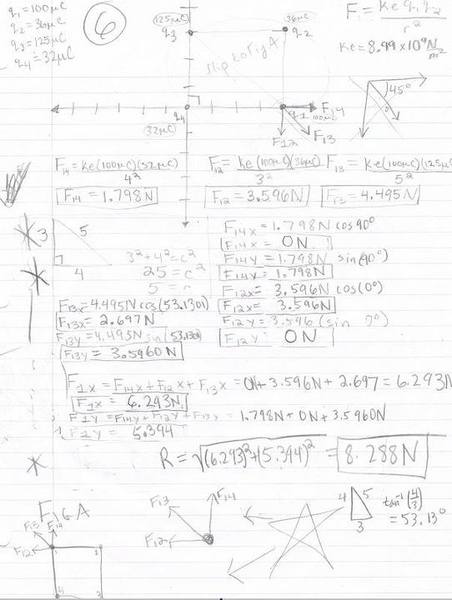 q₁ = 100μC
q₂ = 36μC
q₃ = 125μC
q₄ = 32μC
6
125μC
q₃
36μC
q₂
F = ke q₁ q₂ / r²
ke = 8.99 x 10⁹ N
flip to Fig A
45°
q₄
32μC
q₁ 100μC
F₁₄
F₁₂
F₁₃
F₁₄ = ke(100μC)(32μC) / 4²
F₁₂ = ke(100μC)(36μC) / 3²
F₁₃ = ke(100μC)(125μC) / 5²
F₁₄ = 1.798N
F₁₂ = 3.596N
F₁₃ = 4.495N
3
5
4
3²+4²=c²
25=c²
F₁₄x = 1.798N cos90°
F₁₄x = 0N
F₁₄y = 1.798N sin(90°)
F₁₄y = 1.798N
F₁₂x = 3.596N cos(0°)
F₁₂x = 3.596N
F₁₂y = 3.596 (sin 0°)
F₁₂y = 0N
F₁₃x = 4.495N cos(53.1301)
F₁₃x = 2.697N
F₁₃y = 4.495N sin(53.1301)
F₁₃y = 3.5960N
F₁x = F₁₄x + F₁₂x + F₁₃x = 0N + 3.596N + 2.697 = 6.293N
F₁x = 6.293N
F₁y = F₁₄y + F₁₂y + F₁₃y = 1.798N + 0N + 3.5960N
F₁y = 5.394
R = √(6.293)²+(5.394)² = 8.288N
Fig A
F₁₃
F₁₄
F₁₂
F₁₃
F₁₄
F₁₂
4
5
3
tan⁻¹(4/3)
= 53.13°